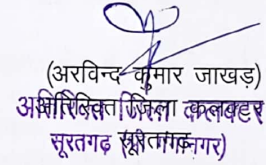 (अरविन्द कुमार जाखड़)
अतिरिक्त जिला कलक्टर
सूरतगढ़ (श्रीगंगानगर)
सूरतगढ़